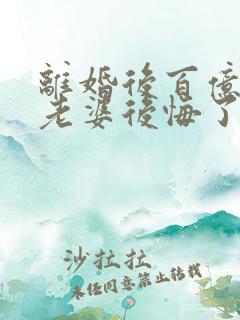 離婚後百億
老婆後悔了
沙拉拉
未经同意禁止转载